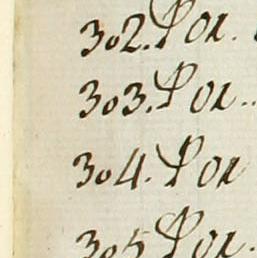 302. Por.
303. Por..
304. Por
305. Por.